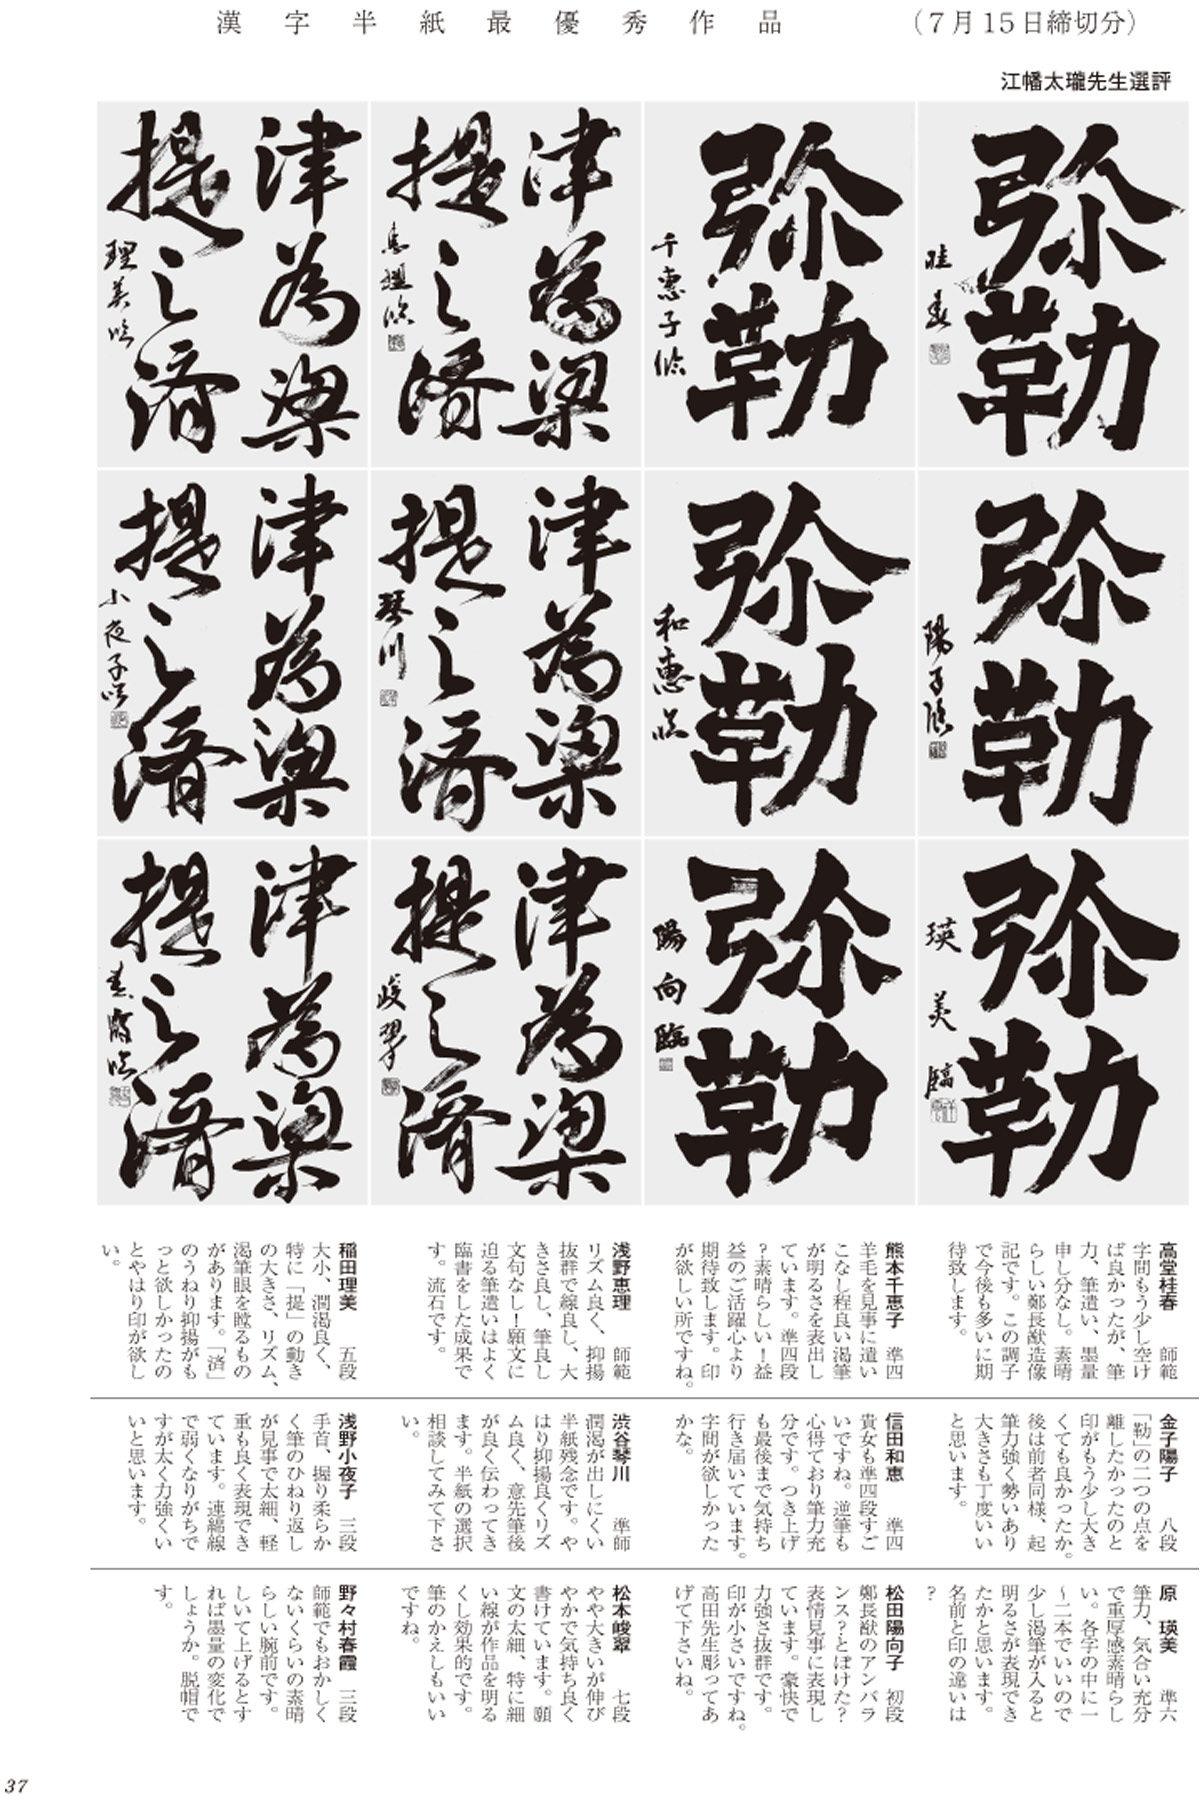 漢字半紙最優秀作品
（7月15日締切分）
江幡太瓏先生選評
弥勒
桂春
弥勒
千恵子臨
津為梁
提之済
恵理臨
津為梁
提之済
理美臨
弥勒
陽子臨
弥勒
和恵臨
津為梁
提之済
琴川
津為梁
提之済
小夜子臨
弥勒
瑛美臨
弥勒
陽向臨
津為梁
提之済
峻翠
津為梁
提之済
春霞臨
高堂桂春　師範
字間もう少し空け
ば良かったが、筆
力、筆遣い、墨量
申し分なし。素晴
らしい鄭長猷造像
記です。この調子
で今後も多いに期
待致します。
熊本千恵子　準四
羊毛を見事に遣い
こなし程良い渇筆
が明るさを表出し
ています。準四段
？素晴らしい！益
益のご活躍心より
期待致します。印
が欲しい所ですね。
浅野恵理　師範
リズム良く、抑揚
抜群で線良し、大
きさ良し、筆良し
文句なし！願文に
迫る筆遣いはよく
臨書をした成果で
す。流石です。
稲田理美　五段
大小、潤渇良く、
特に「提」の動き
の大きさ、リズム、
渇筆眼を瞠るもの
があります。「済」
のうねり抑揚がも
っと欲しかったの
とやはり印が欲し
い。
金子陽子　八段
「勒」の二つの点を
離したかったのと
印がもう少し大き
くても良かったか。
後は前者同様、起
筆力強く勢いあり
大きさも丁度いい
と思います。
信田和恵　準四
貴女も準四段すご
いですね。逆筆も
心得ており筆力充
分です。つき上げ
も最後まで気持ち
行き届いています。
字間が欲しかった
かな。
渋谷琴川　準師
潤渇が出しにくい
半紙残念です。や
はり抑揚良くリズ
ム良く、意先筆後
が良く伝わってき
ます。半紙の選択
相談してみて下さ
い。
浅野小夜子　三段
手首、握り柔らか
く筆のひねり返し
が見事で太細、軽
重も良く表現でき
ています。連綿線
で弱くなりがちで
すが太く力強くい
いと思います。
原　瑛美　準六
筆力、気合い充分
で重厚感素晴らし
い。各字の中に一
～二本でいいので
少し渇筆が入ると
明るさが表現でき
たかと思います。
名前と印の違いは
？
松田陽向子　初段
鄭長猷のアンバラ
ンス？とぼけた？
表情見事に表現し
ています。豪快で
力強さ抜群です。
印が小さいですね。
高田先生彫ってあ
げて下さいね。
松本峻翠　七段
やや大きいが伸び
やかで気持ち良く
書けています。願
文の太細、特に細
い線が作品を明る
くし効果的です。
筆のかえしもいい
ですね。
野々村春霞　三段
師範でもおかしく
ないくらいの素晴
らしい腕前です。
しいて上げるとす
れば墨量の変化で
しょうか。脱帽で
す。
37